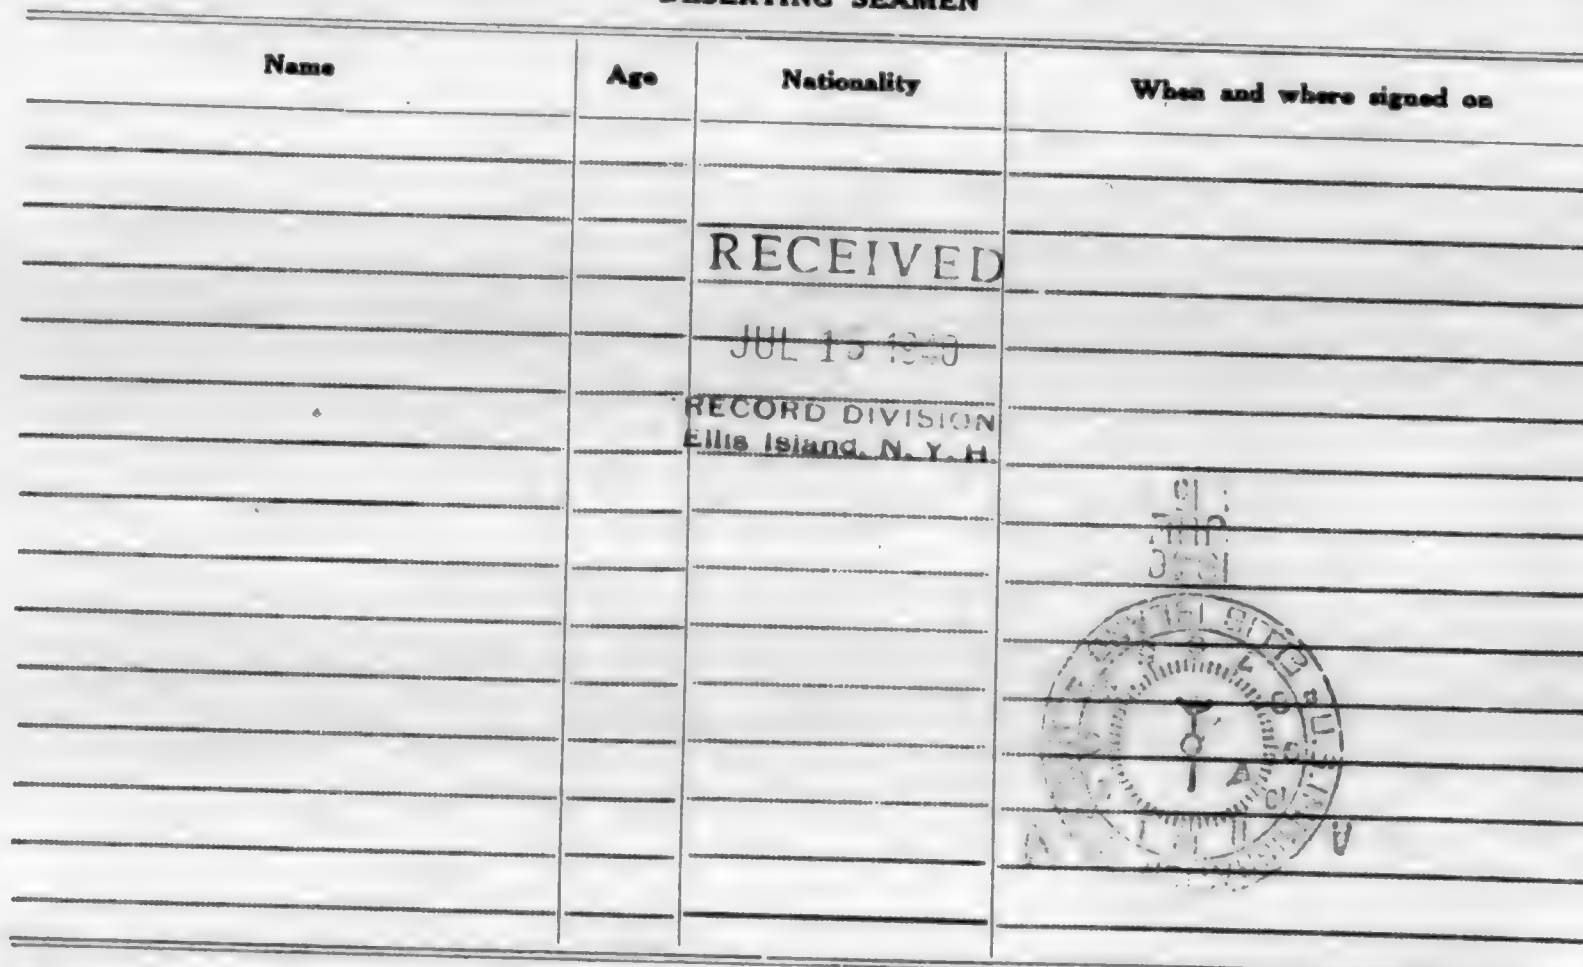 DESERTING SEAMEN
Name Age Nationality When and where signed on
RECEIVED
JUL 15
RECORD DIVISION
Ellis Island, N. Y. H.